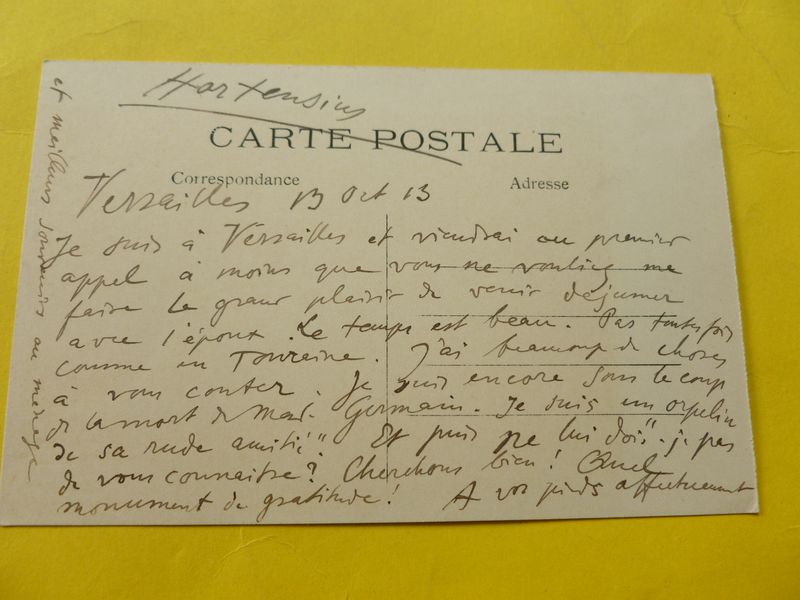 Hortensius
CARTE POSTALE
Correspondance
Adresse
Versailles 13 Oct 13
Je suis à Versailles et viendrai au premier
appel à moins que vous ne vouliez me
faire le grand plaisir de venir déjeuner
avec l'époux. Le temps est beau. Pas toutefois
comme en Touraine. J'ai beaucoup de choses
à vous conter. Je suis encore sous le coup
de la mort de Mad. Germain. Je suis un orpelin
de sa rude amitié. Et puis ne lui dois-je pas
de vous connaitre? Cherchons bien! Quel
monument de gratitude! A vos pieds affectueusement
et meilleurs souvenirs au ménage